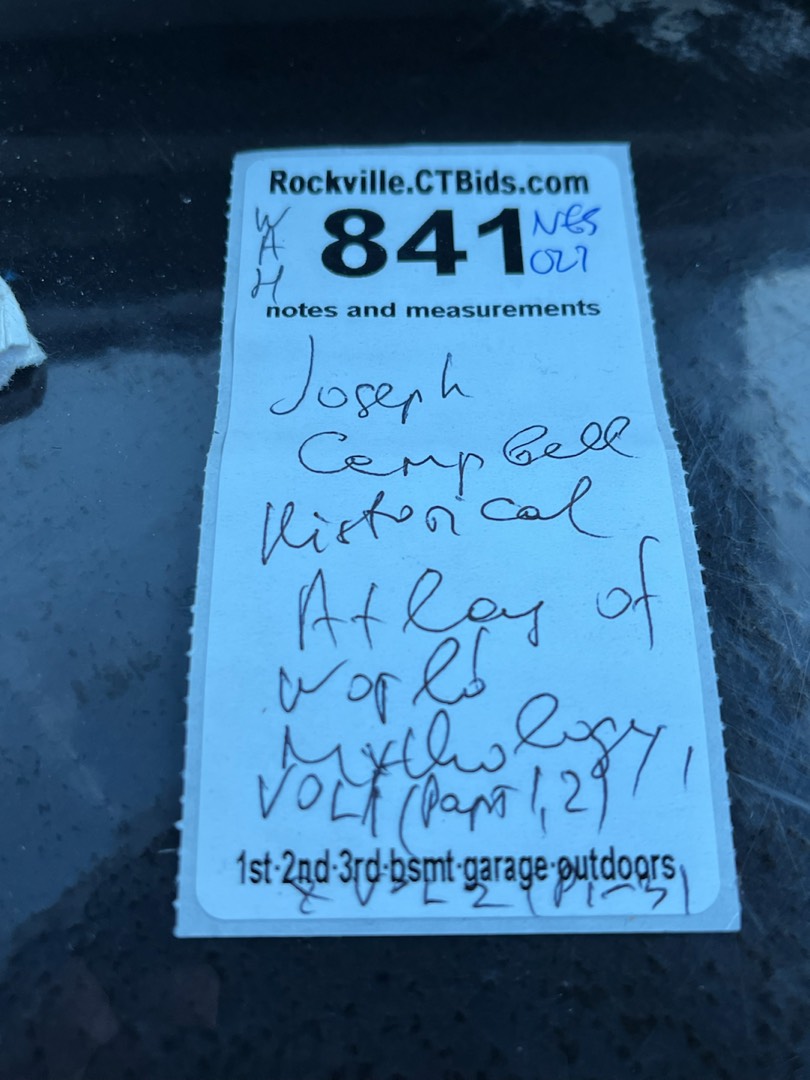 Rockville.CTBids.com
WAH
841
NES
027
notes and measurements
Joseph
Campbell
Historical
Atlas of
World
Mythology,
VOL1 (Part 1,2)
1st·2nd·3rd·bsmt·garage·outdoors
& VOL 2 (P1-3)